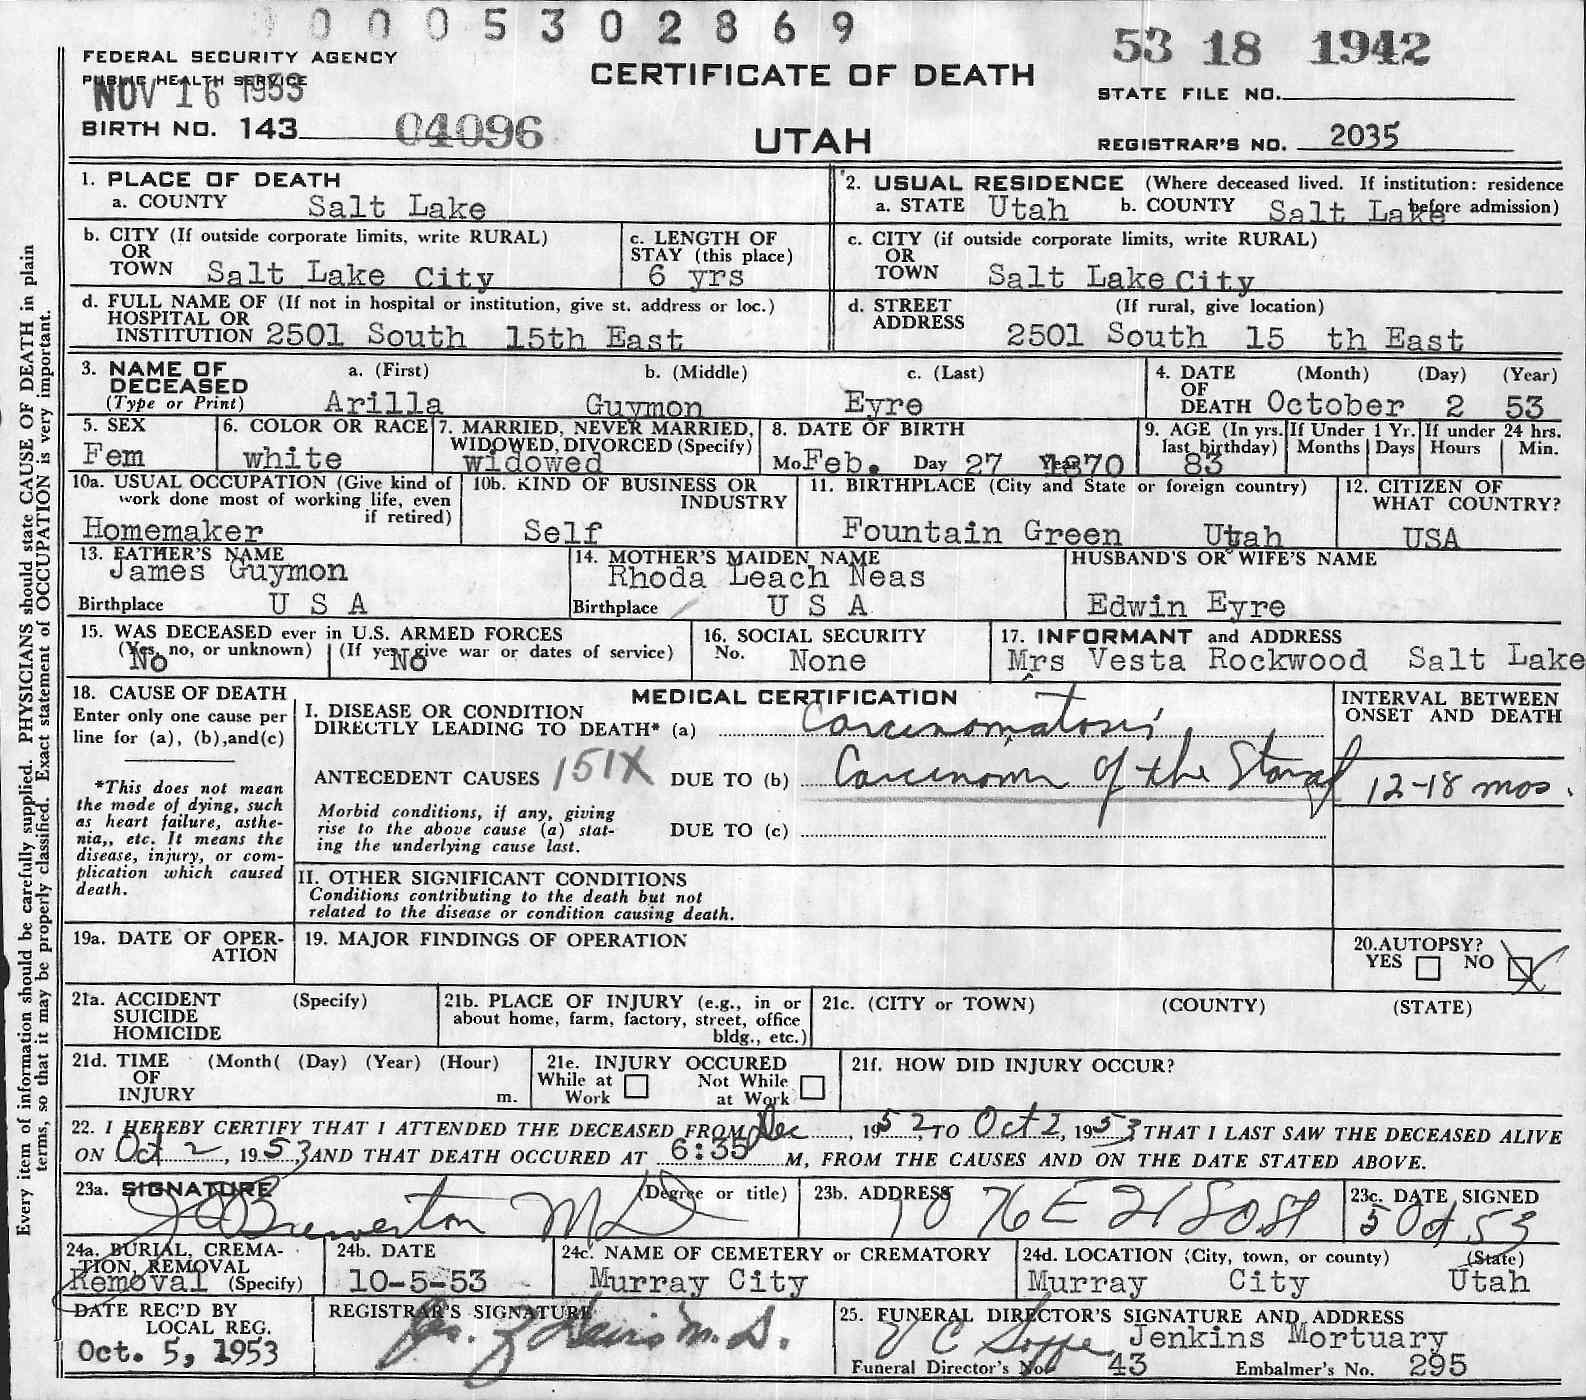 0 0 0 5 3 0 2 8 6 9
53 18 1942
FEDERAL SECURITY AGENCY
PUBLIC HEALTH SERVICE
NOV 16 1953
CERTIFICATE OF DEATH
STATE FILE NO.
BIRTH NO. 143 04096
UTAH
REGISTRAR'S NO. 2035
1. PLACE OF DEATH
a. COUNTY Salt Lake
2. USUAL RESIDENCE (Where deceased lived. If institution: residence before admission)
a. STATE Utah b. COUNTY Salt Lake
b. CITY (If outside corporate limits, write RURAL)
OR
TOWN Salt Lake City
c. LENGTH OF
STAY (this place)
6 yrs
c. CITY (if outside corporate limits, write RURAL)
OR
TOWN Salt Lake City
d. FULL NAME OF (If not in hospital or institution, give st. address or loc.)
HOSPITAL OR
INSTITUTION 2501 South 15th East
d. STREET (If rural, give location)
ADDRESS 2501 South 15 th East
3. NAME OF DECEASED a. (First) b. (Middle) c. (Last)
(Type or Print) Arilla Guymon Eyre
4. DATE OF DEATH (Month) (Day) (Year)
October 2 53
5. SEX
Fem
6. COLOR OR RACE
white
7. MARRIED, NEVER MARRIED,
WIDOWED, DIVORCED (Specify)
widowed
8. DATE OF BIRTH
Mo Feb. Day 27 Year 1870
9. AGE (In yrs. last birthday)
83
If Under 1 Yr.
Months Days
If under 24 hrs.
Hours Min.
10a. USUAL OCCUPATION (Give kind of
work done most of working life, even
if retired)
Homemaker
10b. KIND OF BUSINESS OR
INDUSTRY
Self
11. BIRTHPLACE (City and State or foreign country)
Fountain Green Utah
12. CITIZEN OF
WHAT COUNTRY?
USA
13. FATHER'S NAME
James Guymon
Birthplace U S A
14. MOTHER'S MAIDEN NAME
Rhoda Leach Neas
Birthplace U S A
HUSBAND'S OR WIFE'S NAME
Edwin Eyre
15. WAS DECEASED ever in U.S. ARMED FORCES
(Yes, no, or unknown) (If yes, give war or dates of service)
No No
16. SOCIAL SECURITY
No. None
17. INFORMANT and ADDRESS
Mrs Vesta Rockwood Salt Lake
18. CAUSE OF DEATH
Enter only one cause per
line for (a), (b),and(c)
*This does not mean
the mode of dying, such
as heart failure, asthe-
nia,, etc. It means the
disease, injury, or com-
plication which caused
death.
MEDICAL CERTIFICATION
I. DISEASE OR CONDITION
DIRECTLY LEADING TO DEATH* (a) Carcinomatosis
ANTECEDENT CAUSES 151X DUE TO (b) Carcinoma of the
Morbid conditions, if any, giving
rise to the above cause (a) stat-
ing the underlying cause last.
DUE TO (c)
INTERVAL BETWEEN
ONSET AND DEATH
12-18 mos.
II. OTHER SIGNIFICANT CONDITIONS
Conditions contributing to the death but not
related to the disease or condition causing death.
19a. DATE OF OPER-
ATION
19. MAJOR FINDINGS OF OPERATION
20.AUTOPSY?
YES NO
21a. ACCIDENT (Specify)
SUICIDE
HOMICIDE
21b. PLACE OF INJURY (e.g., in or
about home, farm, factory, street, office
bldg., etc.)
21c. (CITY or TOWN) (COUNTY) (STATE)
21d. TIME (Month( (Day) (Year) (Hour)
OF
INJURY m.
21e. INJURY OCCURED
While at Work Not While at Work
21f. HOW DID INJURY OCCUR?
22. I HEREBY CERTIFY THAT I ATTENDED THE DECEASED FROM Dec, 1952, TO Oct 2, 1953 THAT I LAST SAW THE DECEASED ALIVE
ON Oct 2, 1953 AND THAT DEATH OCCURED AT 6:35 M, FROM THE CAUSES AND ON THE DATE STATED ABOVE.
23a. SIGNATURE (Degree or title)
Brewerton MD
23b. ADDRESS
1076 E 21 So St
23c. DATE SIGNED
5 Oct 53
24a. BURIAL, CREMA-
TION, REMOVAL
Removal (Specify)
24b. DATE
10-5-53
24c. NAME OF CEMETERY or CREMATORY
Murray City
24d. LOCATION (City, town, or county) (State)
Murray City Utah
DATE REC'D BY
LOCAL REG.
Oct. 5, 1953
REGISTRAR'S SIGNATURE
M.D.
25. FUNERAL DIRECTOR'S SIGNATURE AND ADDRESS
Jenkins Mortuary
Funeral Director's No. 43 Embalmer's No. 295
Every item of information should be carefully supplied. PHYSICIANS should state CAUSE OF DEATH in plain
terms, so that it may be properly classified. Exact statement of OCCUPATION is very important.